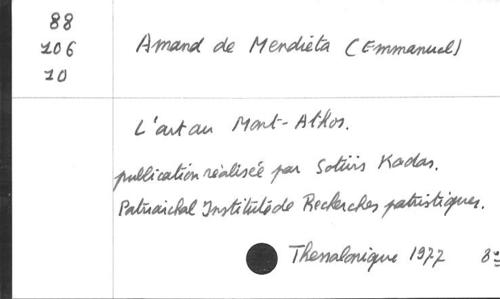 88
106
10
Amand de Mendieta (Emmanuel)
L'art au Mont-Athos.
publication réalisée par Sotiris Kadas.
Patriarchal Institute de Recherches patristiques.
Thessalonique 1977 8º